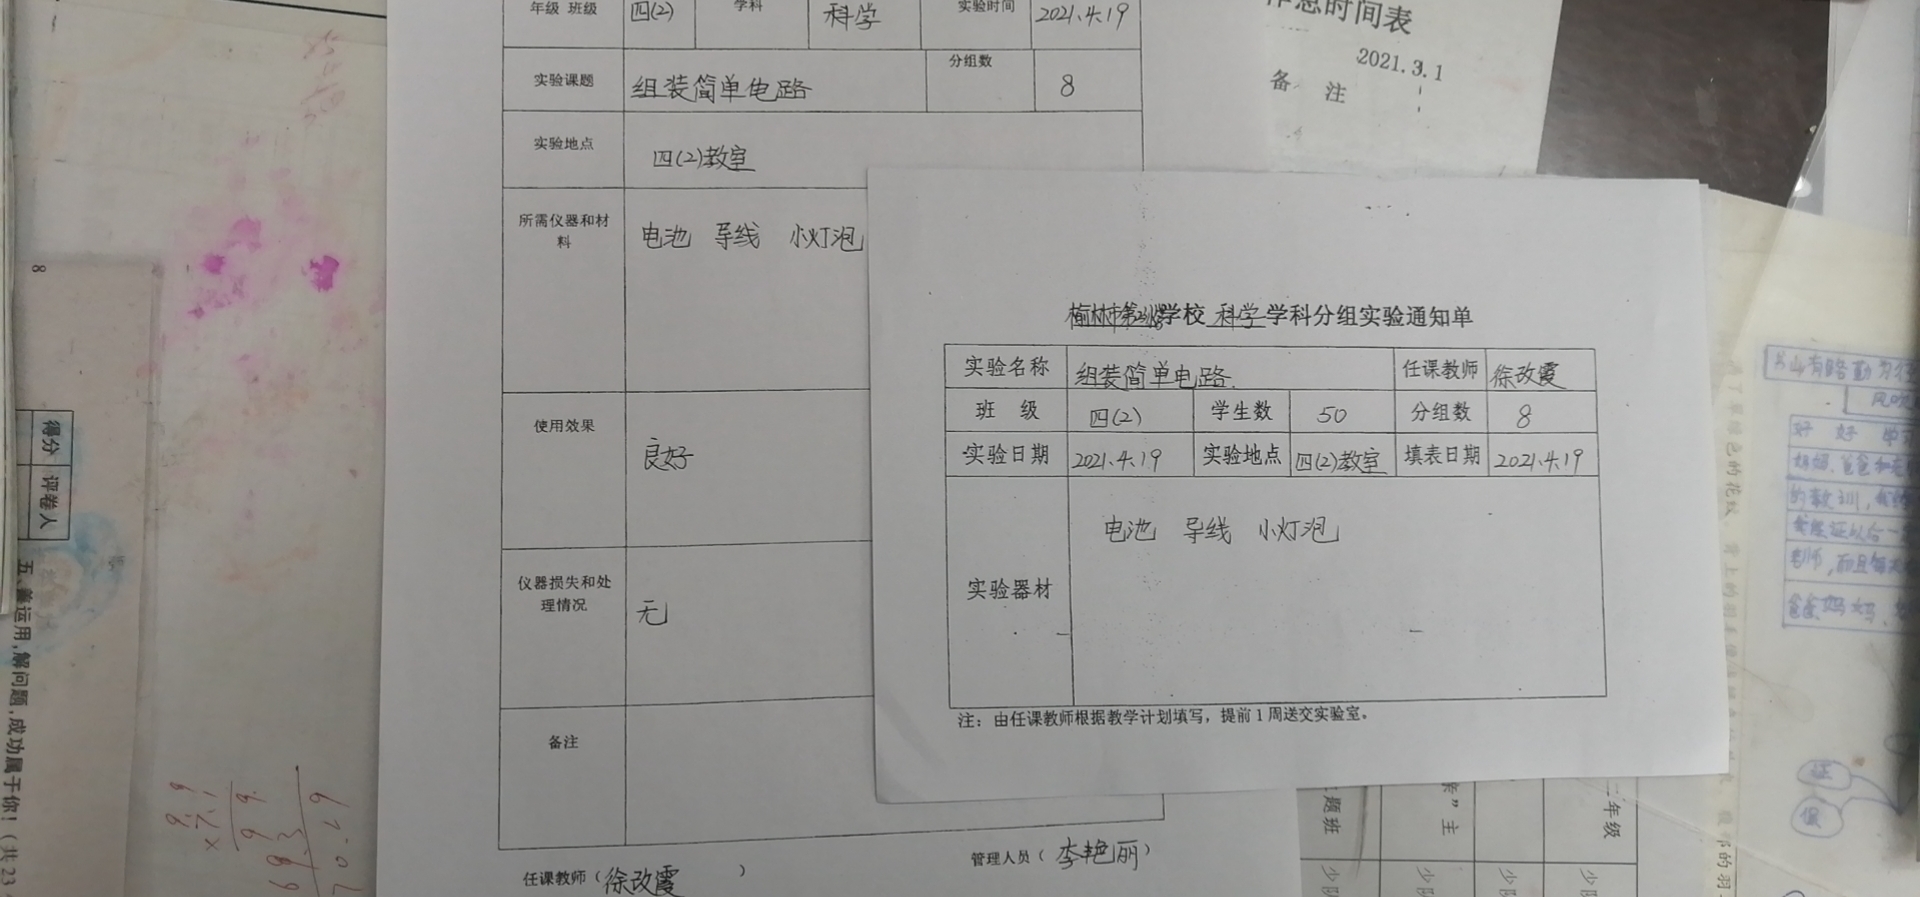 年级 班级 四(2) 学科 科学 实验时间 2021.4.19
实验课题 组装简单电路 分组数 8
实验地点 四(2)教室
所需仪器和材料 电池 导线 小灯泡
使用效果 良好
仪器损失和处理情况 无
备注
任课教师(徐改霞)
管理人员(李艳丽)
学校 科学 学科分组实验通知单
实验名称 组装简单电路 任课教师 徐改霞
班 级 四(2) 学生数 50 分组数 8
实验日期 2021.4.19 实验地点 四(2)教室 填表日期 2021.4.19
实验器材 电池 导线 小灯泡
注：由任课教师根据教学计划填写，提前1周送交实验室。
息时间表
2021.3.1
备 注
8
得分 评卷人
五、善运用,解问题,成功属于你!(共23
题班
"主
二年级
少队
少队
少队
少队
书山有路勤为径
好 好 学习